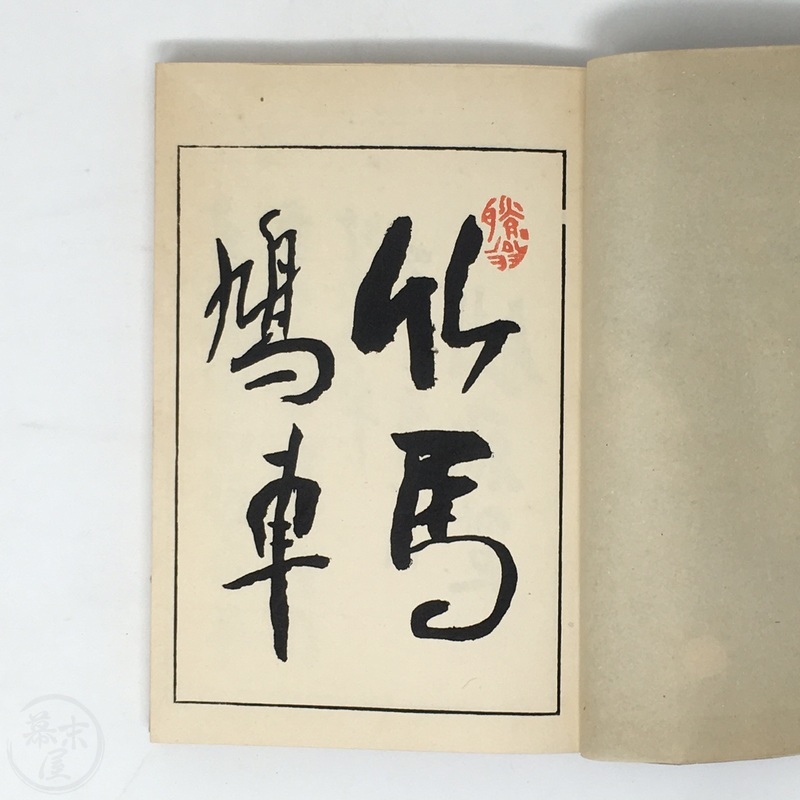 竹馬
鳩車
幕末屋